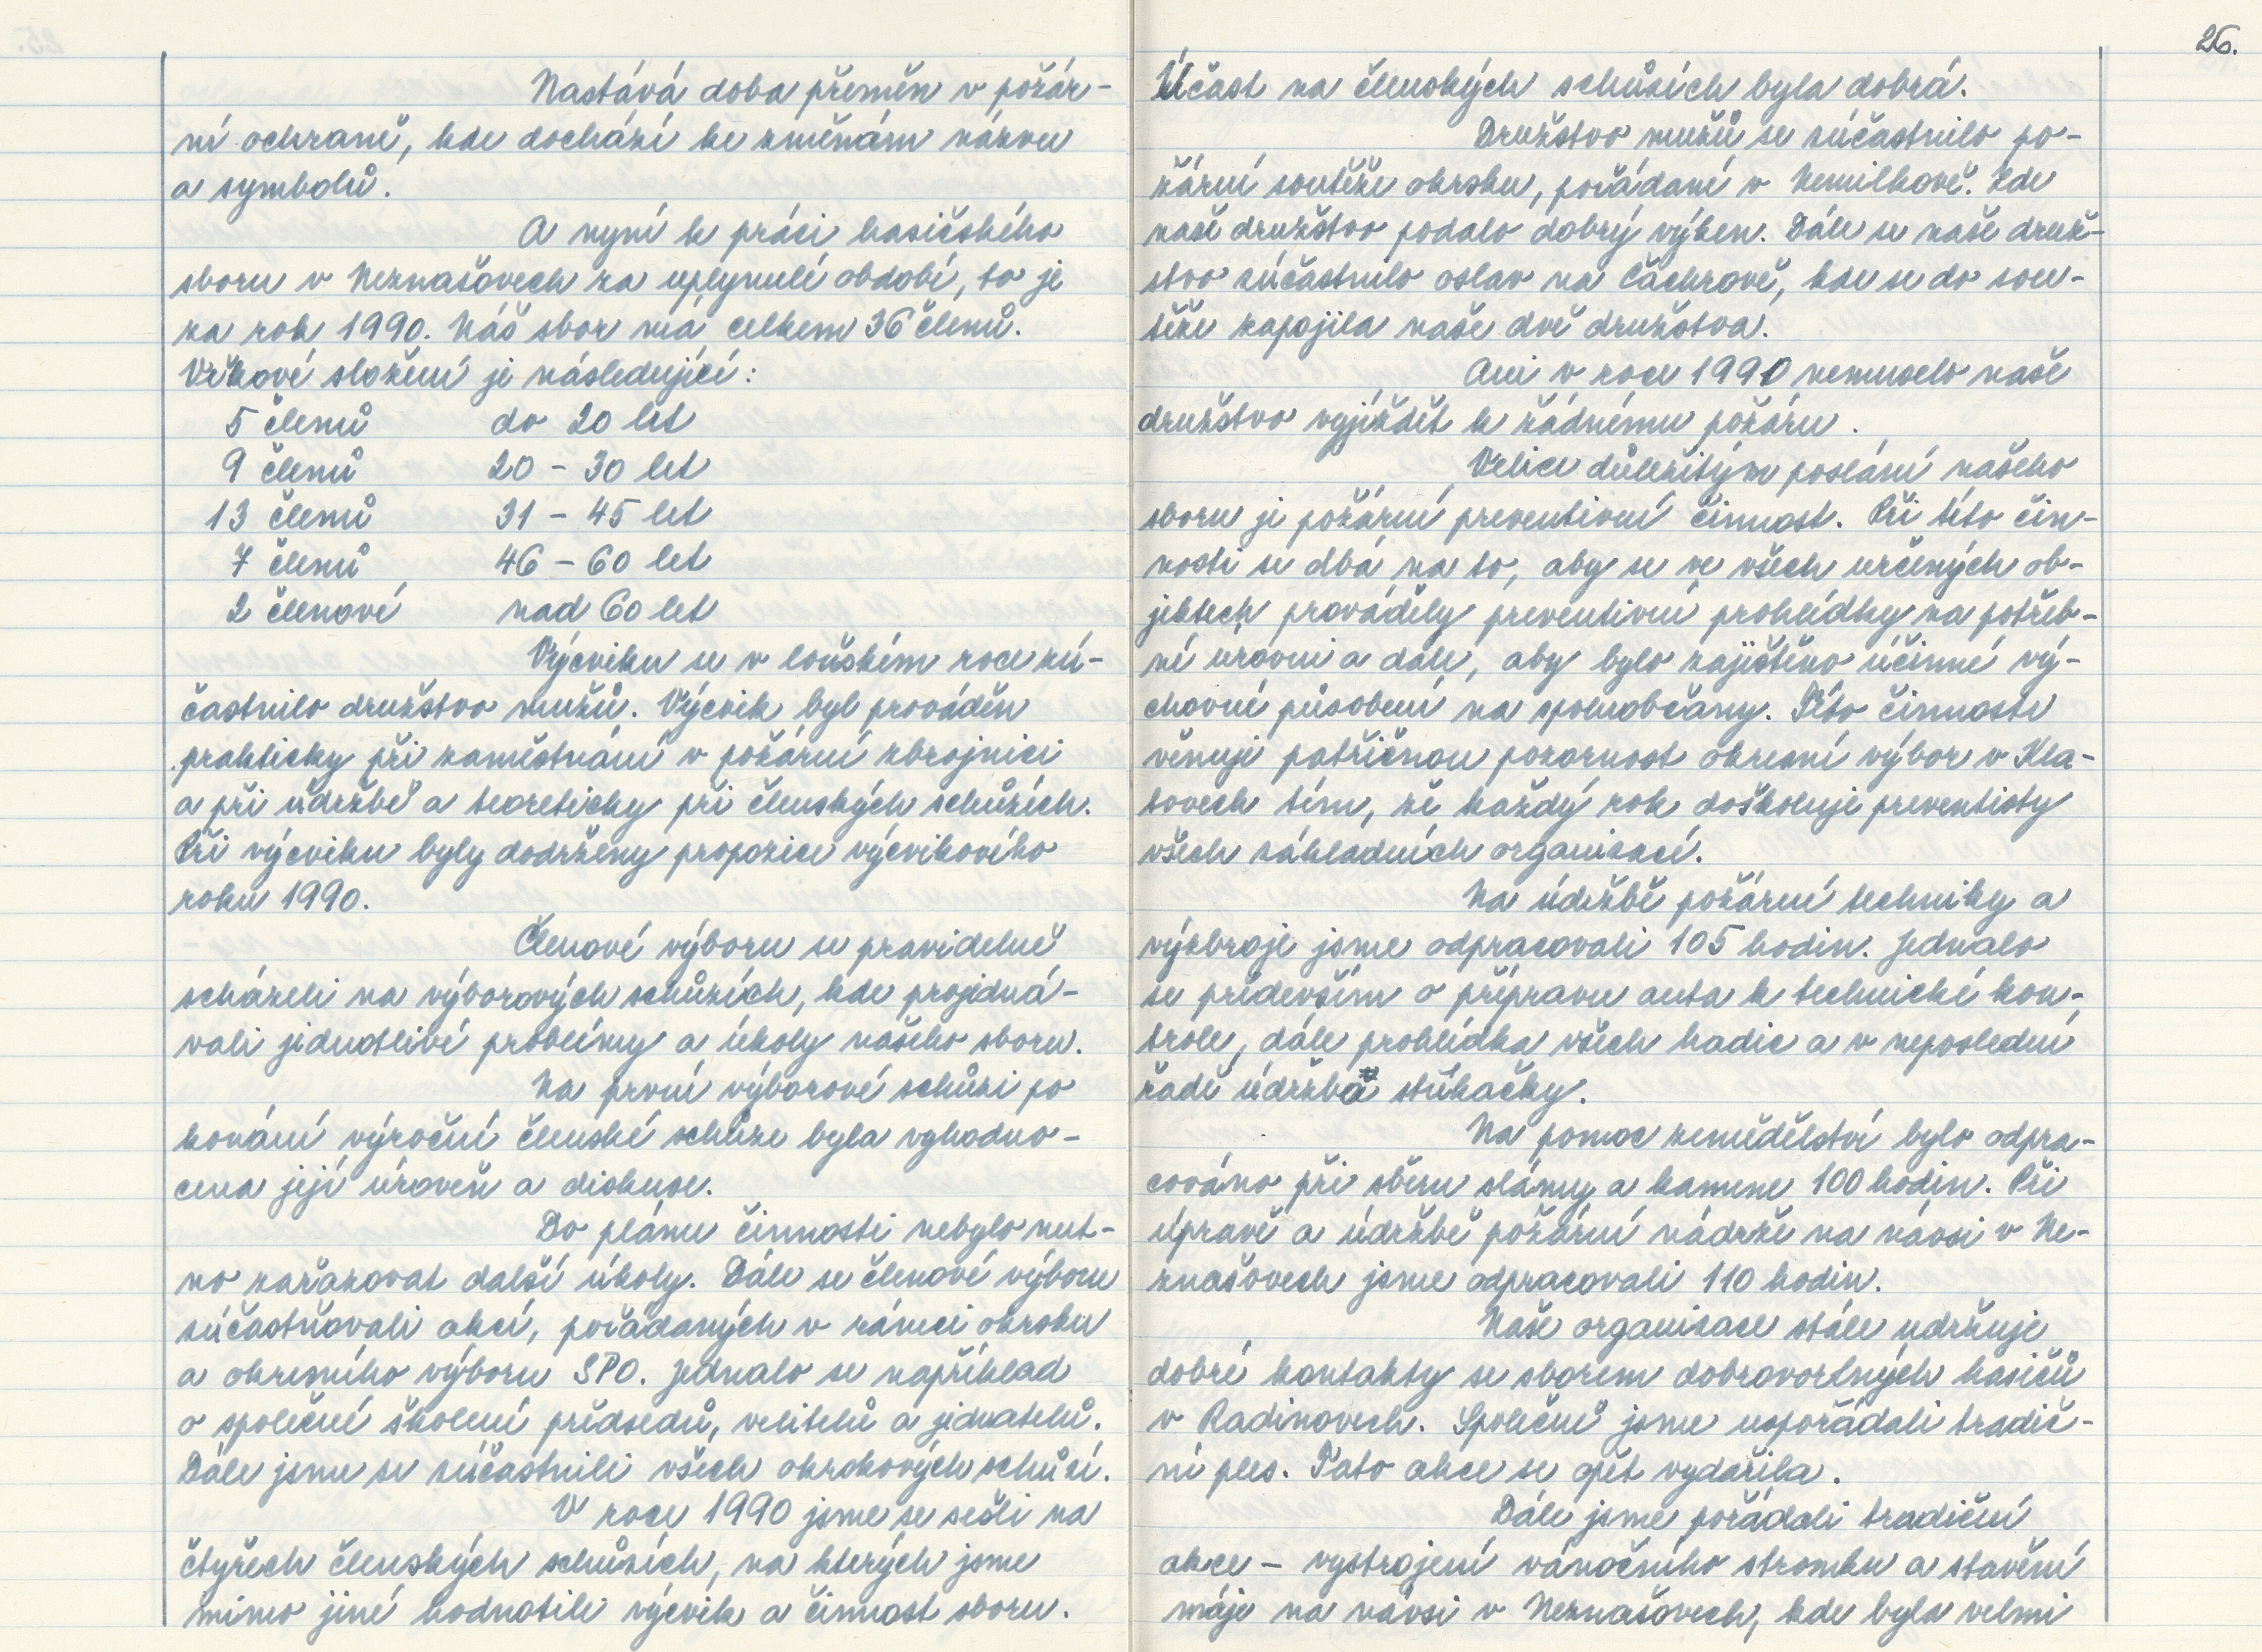 Nastává doba přeměn v požár-
ní ochraně, kde dochází ke změnám názvu
a symbolů.
A nyní k práci hasičského
sboru v Neznašovech za uplynulé období, to je
za rok 1990. Náš sbor má celkem 36 členů.
Věkové složení je následující:
5 členů do 20 let
9 členů 20 - 30 let
13 členů 31 - 45 let
7 členů 46 - 60 let
2 členové nad 60 let
Výcviku se v loňském roce zú-
častnilo družstvo mužů. Výcvik byl prováděn
prakticky při zaměstnání v požární zbrojnici
a při údržbě a teoreticky při členských schůzích.
Při výcviku byly dodrženy propozice výcvikového
roku 1990.
Členové výboru se pravidelně
scházeli na výborových schůzích, kde projedná-
vali jednotlivé problémy a úkoly našeho sboru.
Na první výborové schůzi po
konání výroční členské schůze byla vyhodno-
cena její úroveň a diskuse.
Do plánu činnosti nebylo nut-
no zařazovat další úkoly. Dále se členové výboru
zúčastňovali akcí, pořádaných v rámci okrsku
a okresního výboru SPO. Jednalo se například
o společné školení předsedů, velitelů a jednatelů.
Dále jsme se zúčastnili všech okrskových schůzí.
V roce 1990 jsme se sešli na
čtyřech členských schůzích, na kterých jsme
mimo jiné hodnotili výcvik a činnost sboru.
26.
Účast na členských schůzích byla dobrá.
Družstvo mužů se zúčastnilo po-
žární soutěže okrsku, pořádané v Nemilkově. Zde
naše družstvo podalo dobrý výkon. Dále se naše druž-
stvo zúčastnilo oslav na Čachrově, kde se do sou-
těže zapojila naše dvě družstva.
Ani v roce 1990 nemuselo naše
družstvo vyjíždět k žádnému požáru.
Velice důležitým poslání našeho
sboru je požární preventivní činnost. Při této čin-
nosti se dbá na to, aby se ve všech určených ob-
jektech prováděly preventivní prohlídky na potřeb-
né úrovni a dále, aby bylo zajištěno účinné vý-
chovné působení na spoluobčany. Této činnosti
věnuje patřičnou pozornost okresní výbor v Kla-
tovech tím, že každý rok doškoluje preventisty
všech základních organizací.
Na údržbě požární techniky a
výzbroje jsme odpracovali 105 hodin. Jednalo
se především o přípravu auta k technické kon-
trole, dále prohlídka všech hadic a v neposlední
řadě údržba stříkačky.
Na pomoc zemědělství bylo odpra-
cováno při sběru slámy a kamene 100 hodin. Při
úpravě a údržbě požární nádrže na návsi v Ne-
znašovech jsme odpracovali 110 hodin.
Naše organizace stále udržuje
dobré kontakty se sborem dobrovorlných hasičů
v Radinovech. Společně jsme uspořádali tradič-
ní ples. Tato akce se opět vydařila.
Dále jsme pořádali tradiční
akce - vystrojení vánočního stromku a stavění
máje na návsi v Neznašovech, kde byla velmi